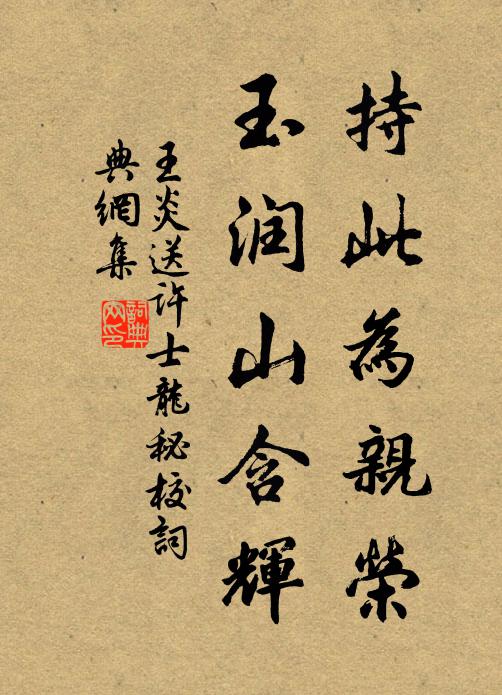 持此為親榮
玉润山含輝
王炎送許士龍秘校詞
典網集
詞典
网印